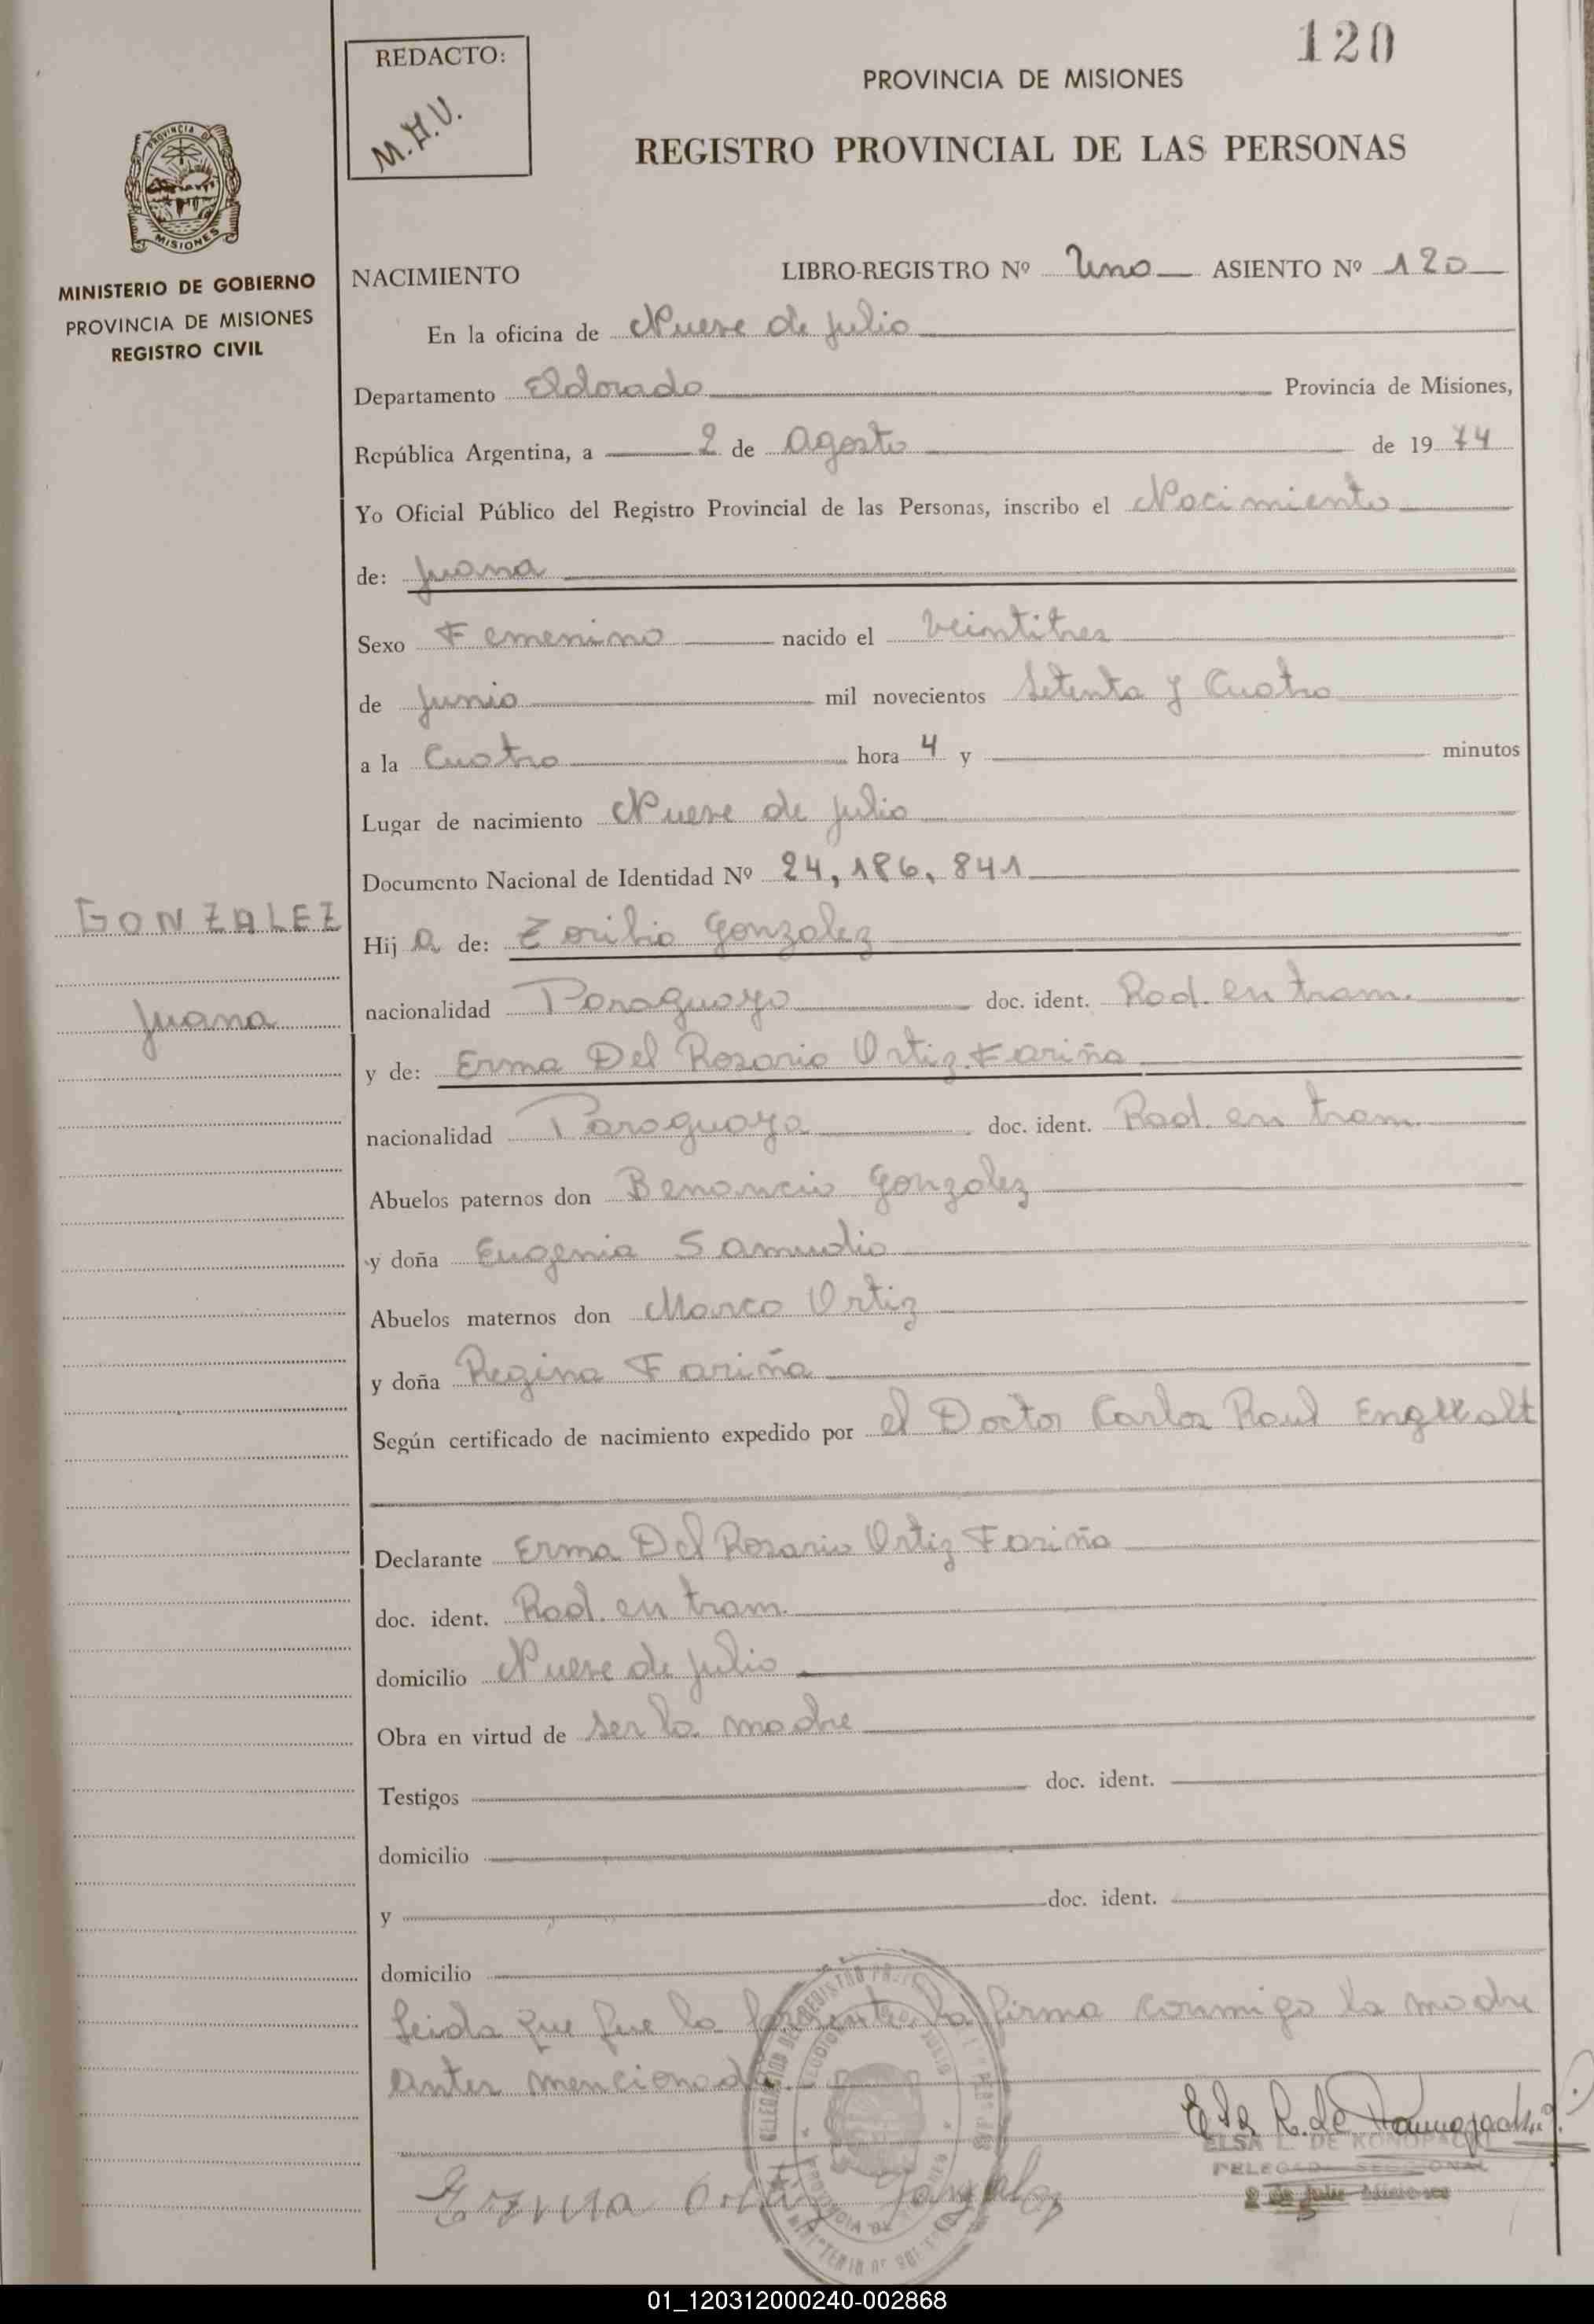 120
REDACTO:
M.H.V.
PROVINCIA DE MISIONES
REGISTRO PROVINCIAL DE LAS PERSONAS
PROVINCIA DE
MISIONES
MINISTERIO DE GOBIERNO
PROVINCIA DE MISIONES
REGISTRO CIVIL
NACIMIENTO LIBRO-REGISTRO Nº Uno ASIENTO Nº 120
En la oficina de Nueve de Julio
Departamento Eldorado Provincia de Misiones,
República Argentina, a 2 de Agosto de 1974
Yo Oficial Público del Registro Provincial de las Personas, inscribo el Nacimiento
de: Juana
Sexo Femenino nacido el veintitres
de Junio mil novecientos Setenta y Cuatro
a la Cuatro hora 4 y minutos
Lugar de nacimiento Nueve de Julio
Documento Nacional de Identidad Nº 24,186,841
GONZALEZ
Juana
Hija de: Toribio Gonzalez
nacionalidad Paraguayo doc. ident. Rad. en tram.
y de: Erma Del Rosario Ortiz Fariña
nacionalidad Paraguaya doc. ident. Rad. en tram.
Abuelos paternos don Benancio Gonzalez
y doña Eugenia Samudio
Abuelos maternos don Marco Ortiz
y doña Regina Fariña
Según certificado de nacimiento expedido por el Doctor Carlos Raul
Declarante Erma Del Rosario Ortiz Fariña
doc. ident. Rad. en tram.
domicilio Nueve de Julio
Obra en virtud de ser la madre
Testigos doc. ident.
domicilio
y doc. ident.
domicilio
Leida que fue la presente, la firma conmigo la madre
antes mencionada.
ELSA DE KONOPACKI
DELEGADA SECCIONAL
9 de Julio Misiones
Ortiz
01_120312000240-002868